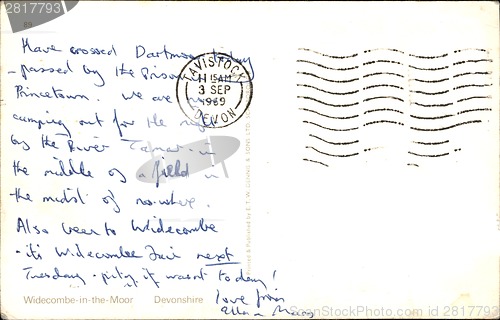 Have crossed Dartmoor today
- passed by the Prison
Princetown. We are now
camping out for the night
by the River Tamar - in
the middle of a field in
the midst of no-where.
Also been to Widecombe
- it's Widecombe Fair next
Tuesday - pity it wasn't today!
love from
Widecombe-in-the-Moor Devonshire
TAVISTOCK
11 15AM
3 SEP
1969
DEVON
Printed & Published by F. T. W. DENNIS & SONS LTD.
2817793
© StockPhotosArt.com 2817793